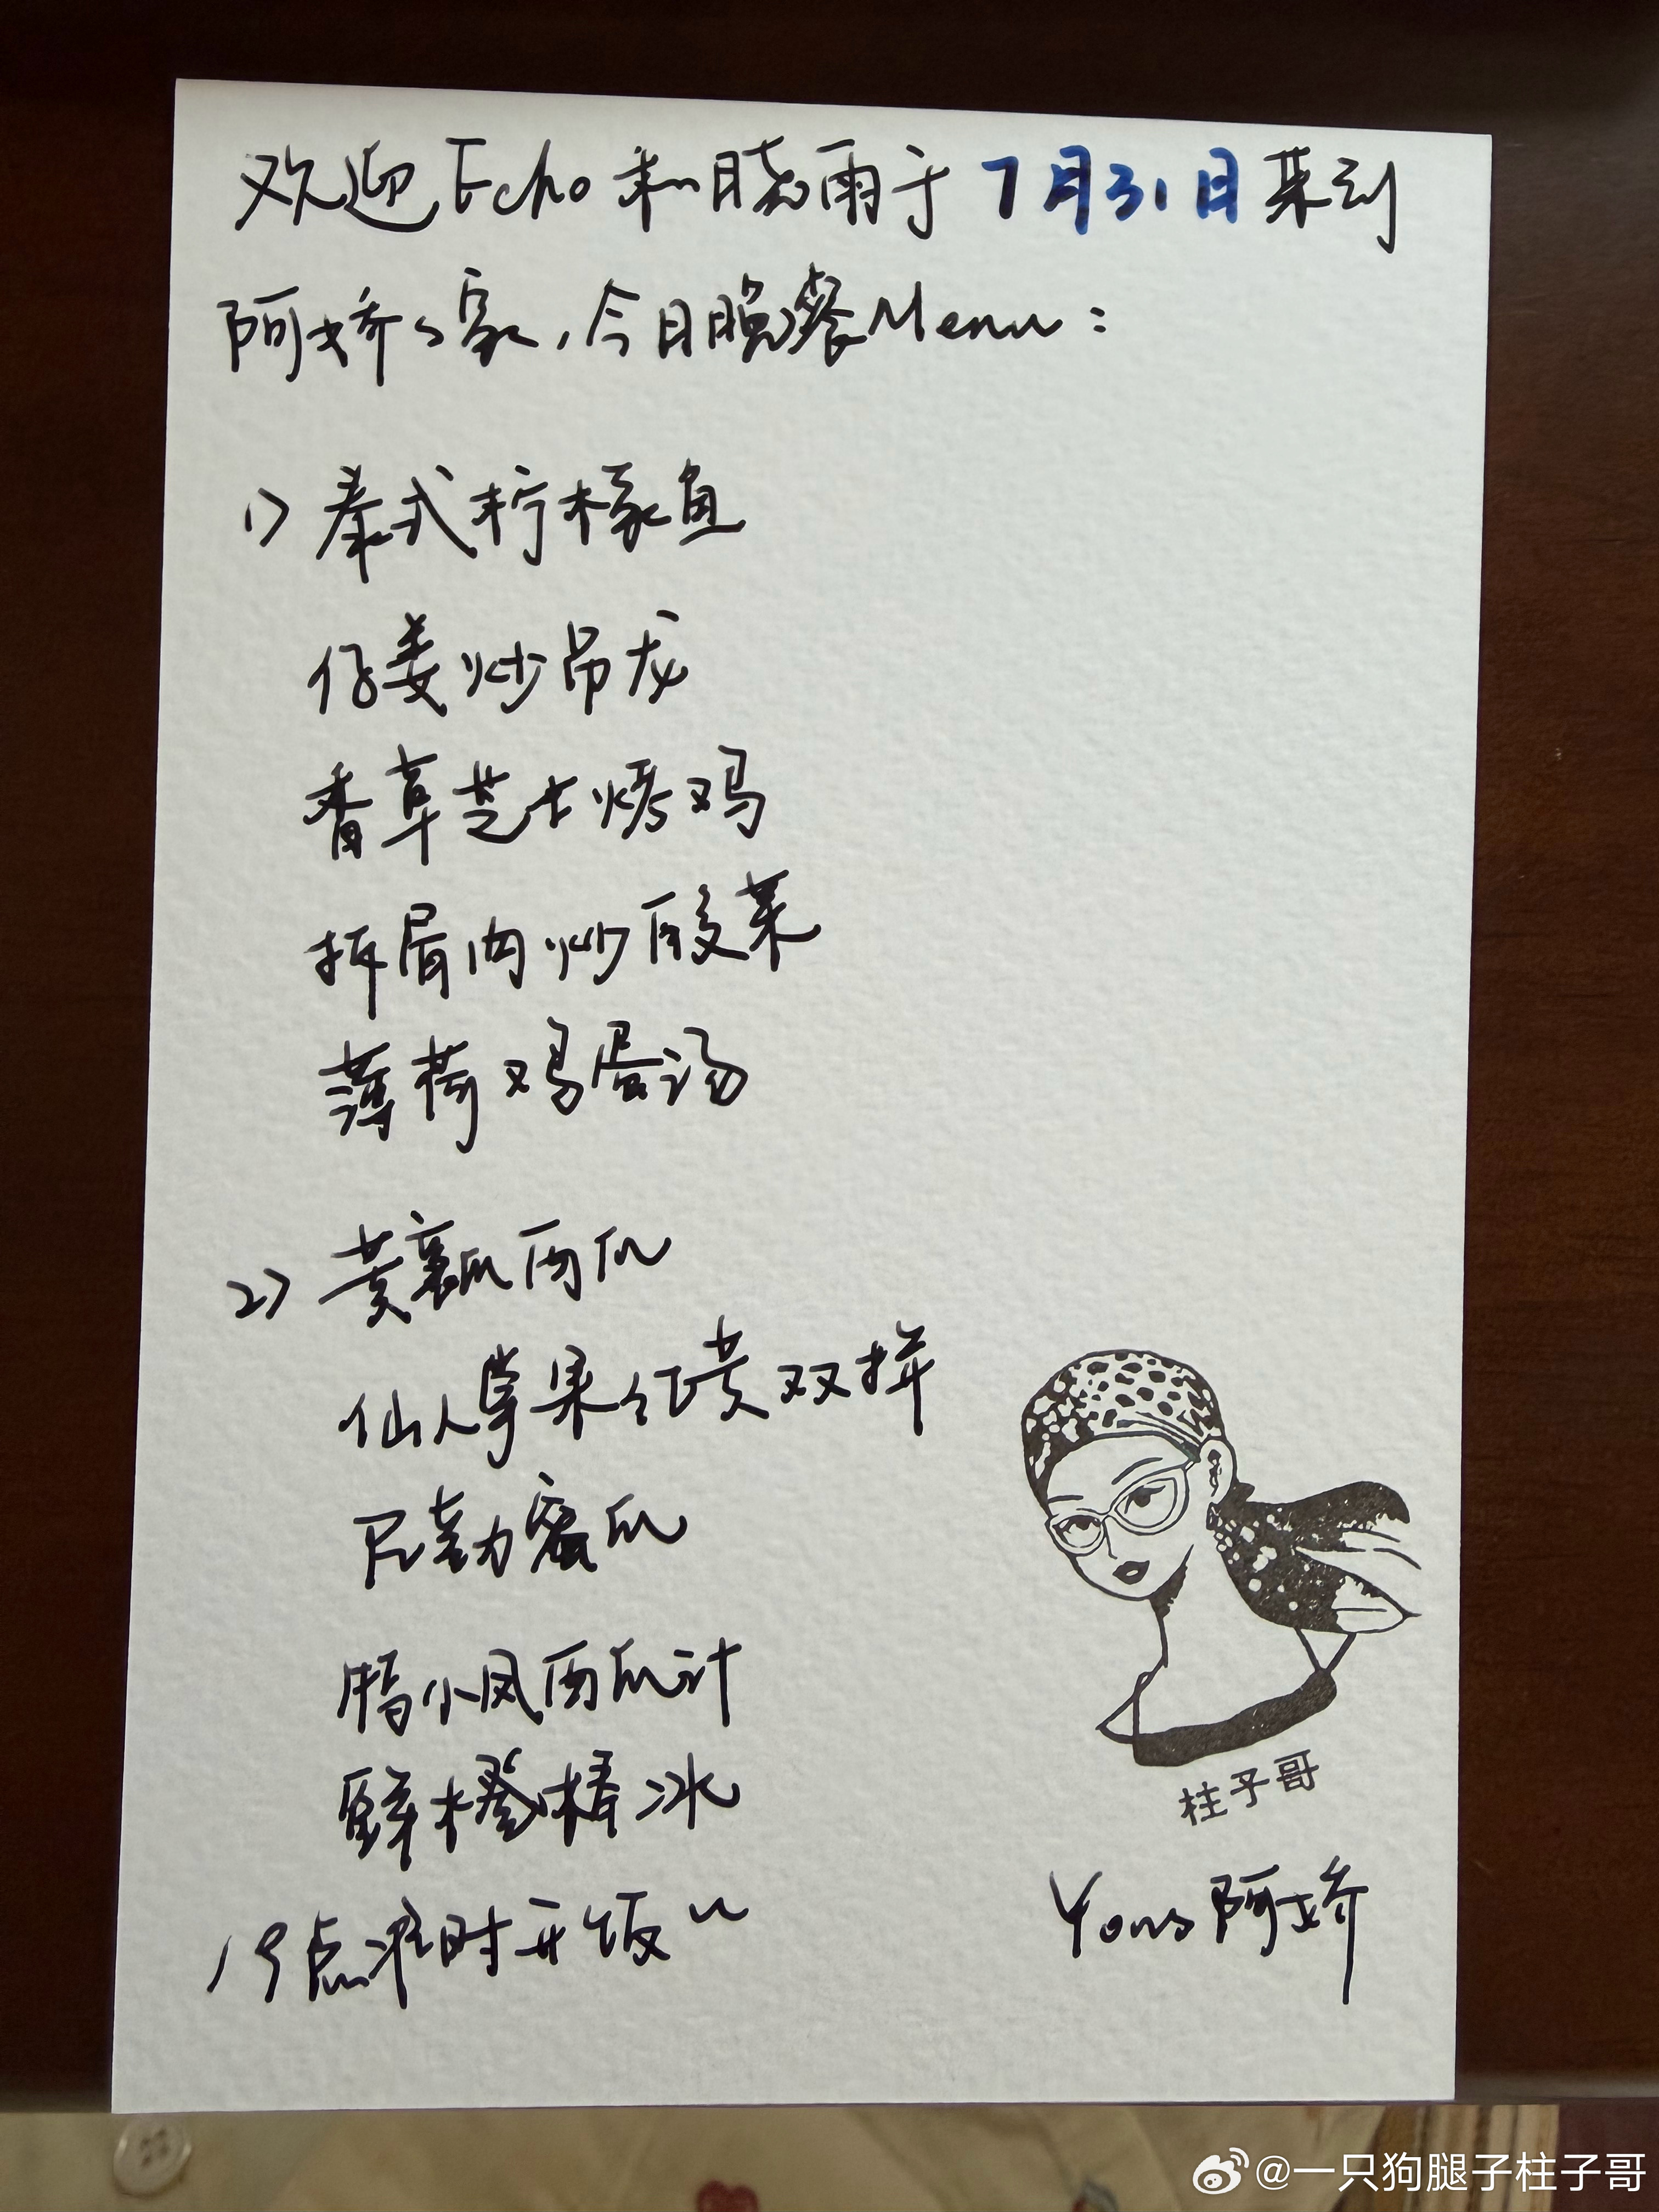 欢迎Echo和晓雨于7月31日来到
阿娇家,今日晚餐Menu:
1) 泰式柠檬鱼
仔姜炒吊龙
香草芝士烤鸡
拆骨肉炒酸菜
薄荷鸡蛋汤
2) 黄瓤西瓜
仙人掌果红黄双拼
尼勒蜜瓜
小凤西瓜汁
鲜橙棒冰
19点准时开饭~
柱子哥
Yours 阿娇
@一只狗腿子柱子哥